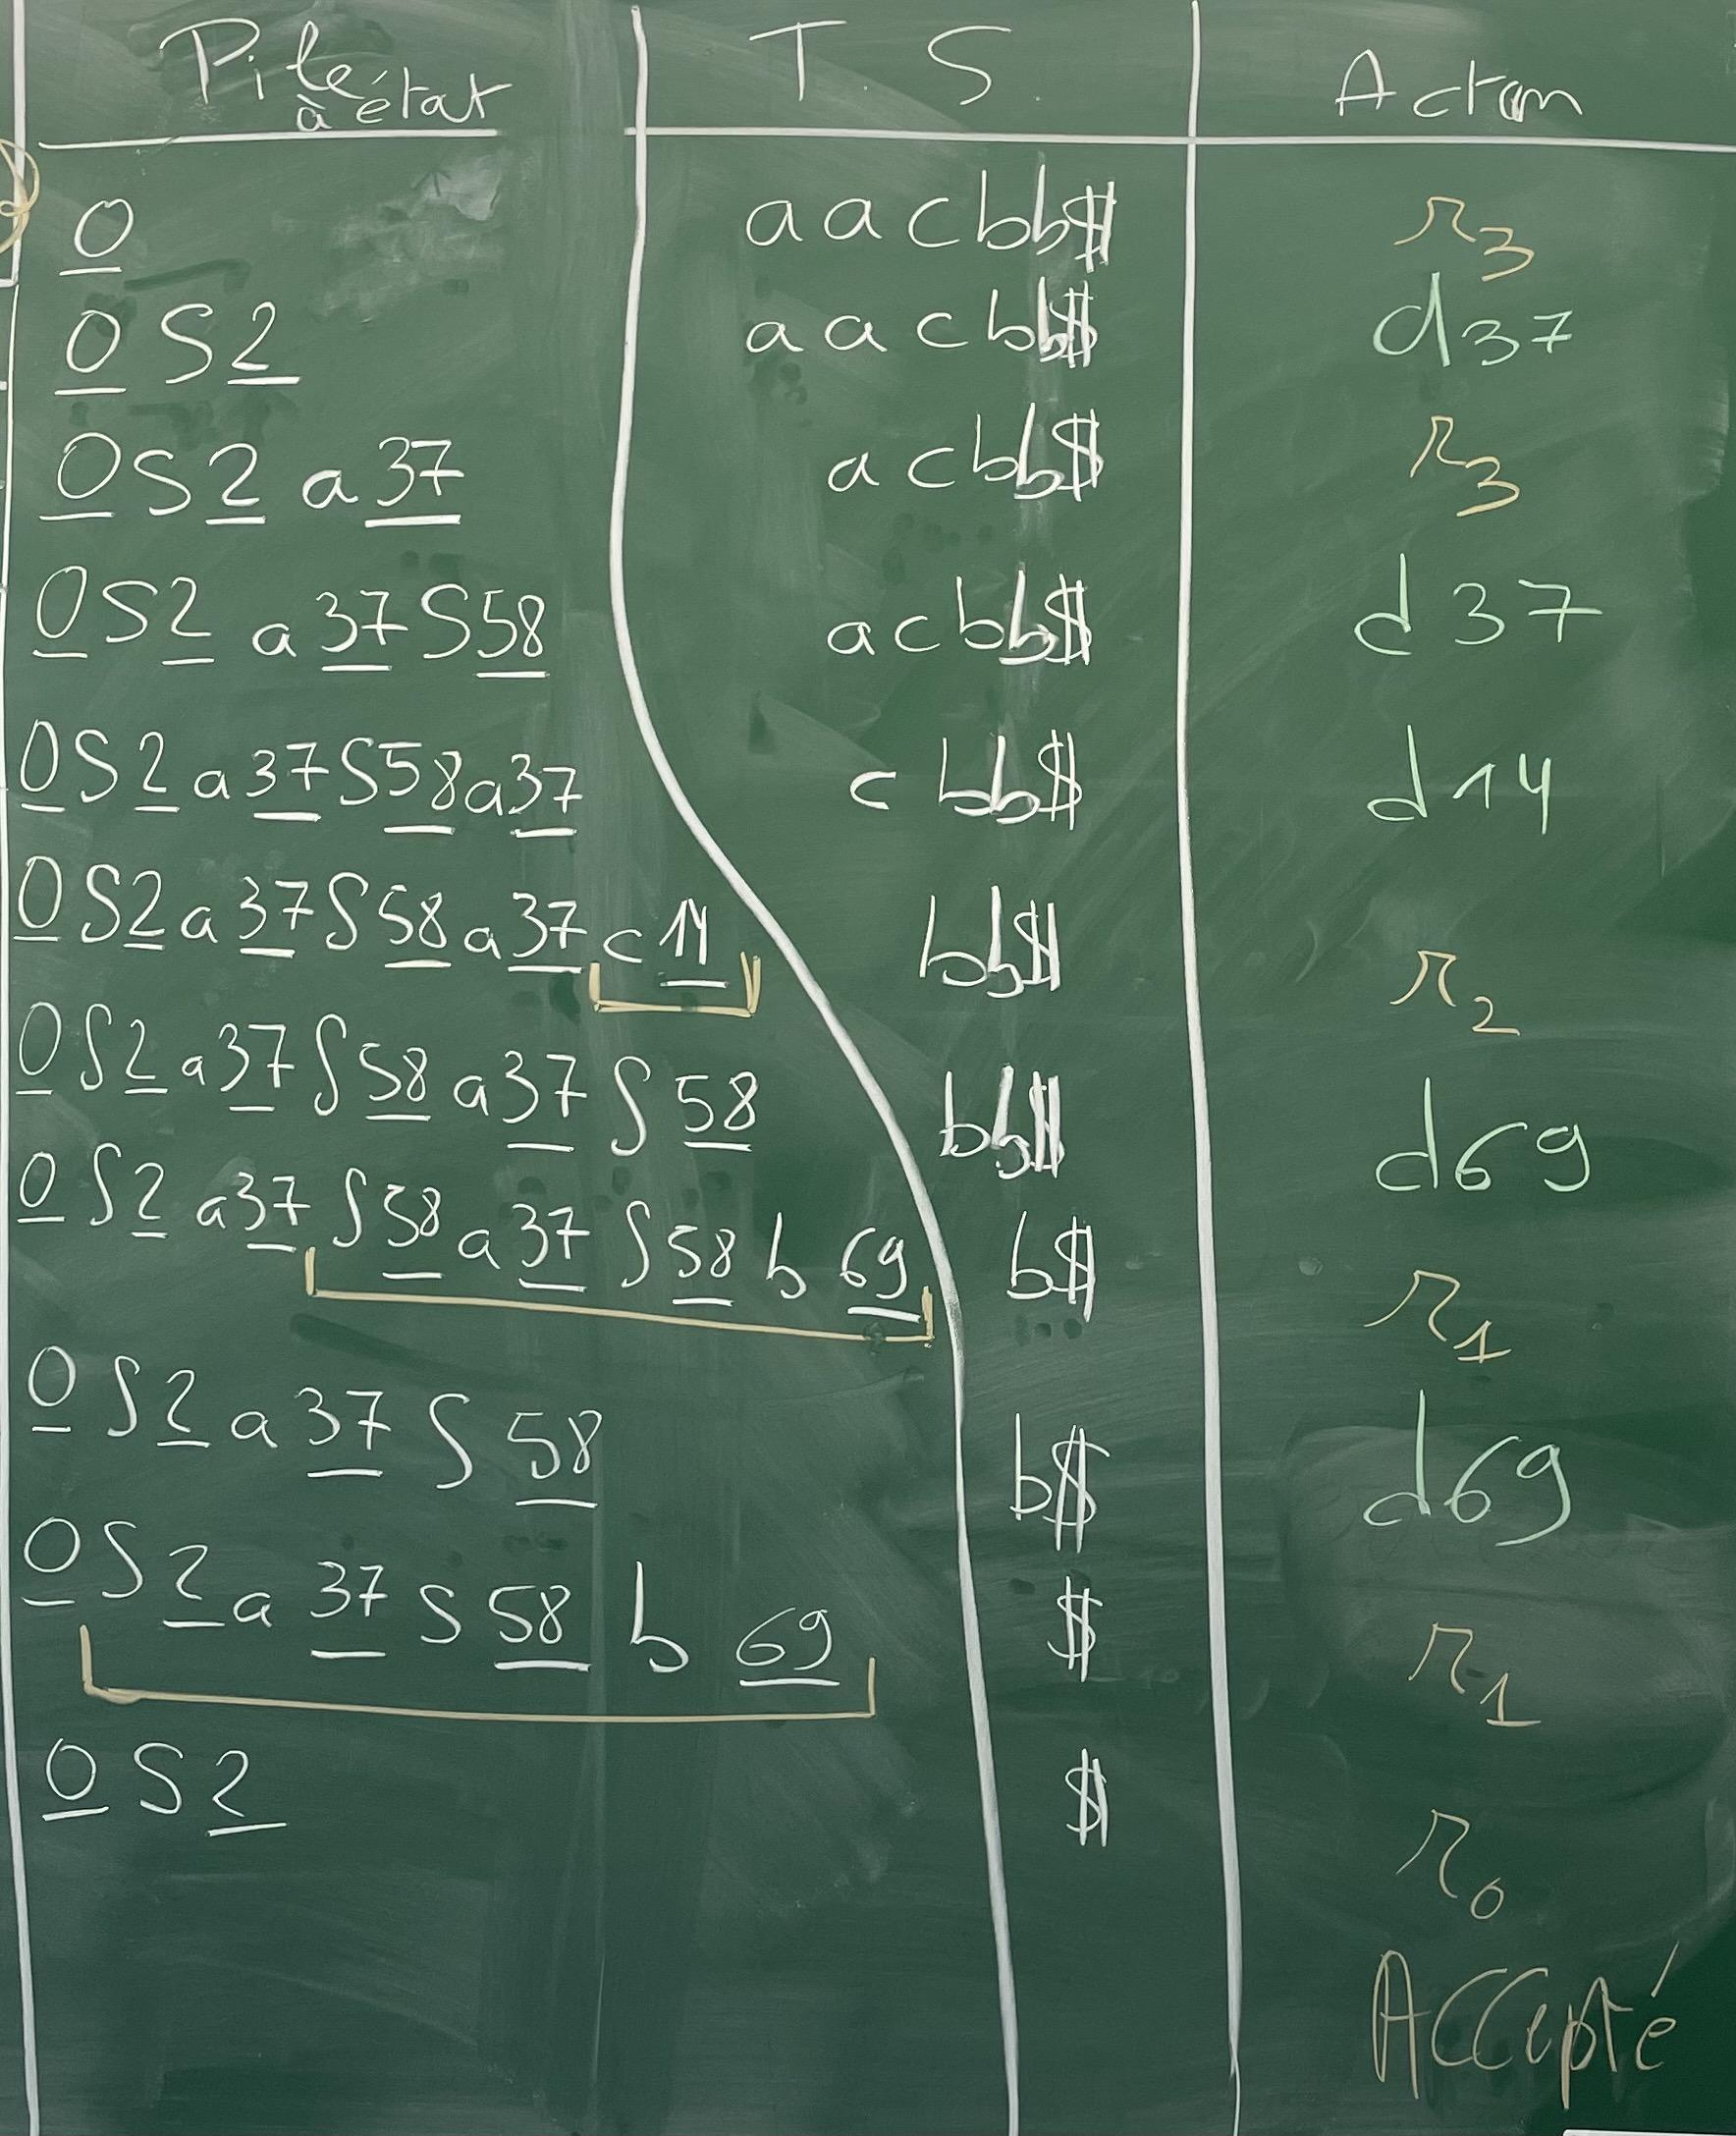 Pile à état T.S. Action
0 aacbb$ r3
0S2 aacbb$ d37
0S2a37 acbb$ r3
0S2a37S58 acbb$ d37
0S2a37S58a37 cbb$ d14
0S2a37S58a37c14 bb$ r2
0S2a37S58a37S58 bb$ d69
0S2a37S58a37S58b69 b$ r1
0S2a37S58 b$ d69
0S2a37S58b69 $ r1
0S2 $ r0
Accepté